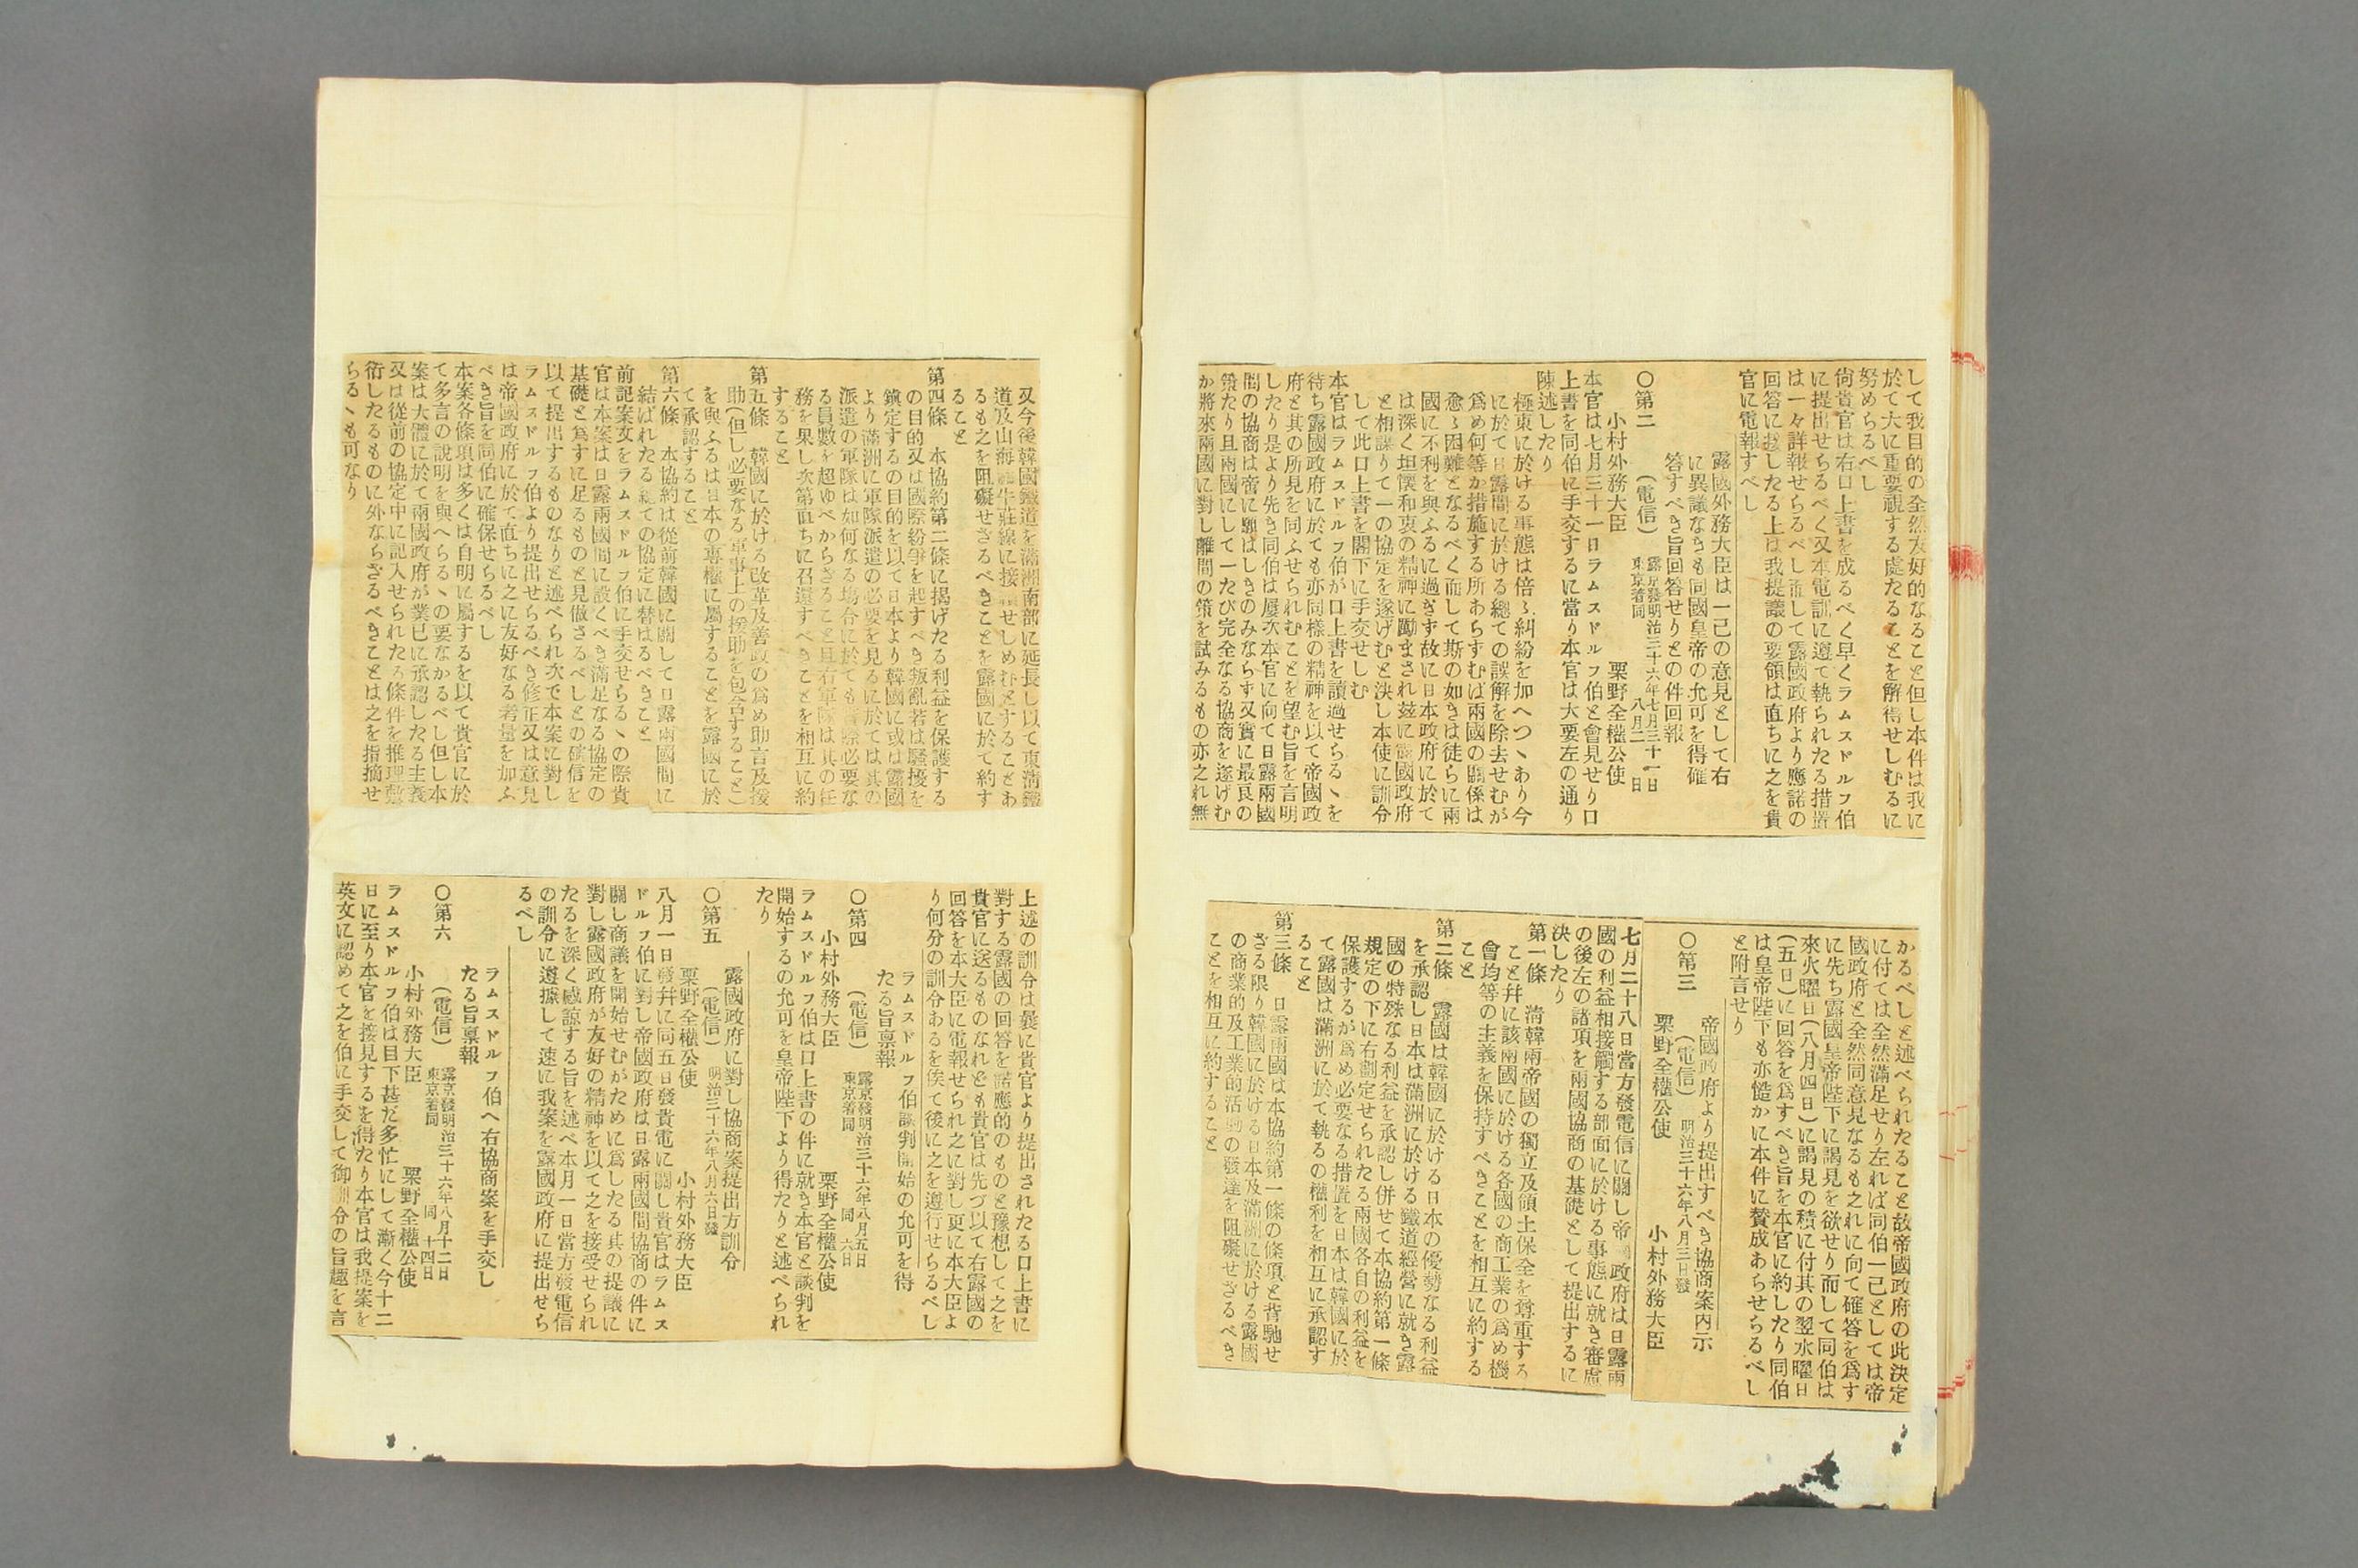 して我目的の全然友好的なること但し本件は我に
於て大に重要視する處たることを解得せしむるに
努めらるべし
尙貴官は右口上書を成るべく早くラムスドルフ伯
に提出せらるべく又本電訓に遵て執られたる措置
は一々詳報せらるべし而して露國政府より應諾の
回答に接したる上は我提議の要領は直ちに之を貴
官に電報すべし
露國外務大臣は一己の意見として右
に異議なきも同國皇帝の允可を得確
答すべき旨回答せりとの件回報
〇第二　（電信）　露京發明治三十六年七月三十一日
東京着同　八月二日
小村外務大臣　栗野全權公使
本官は七月三十一日ラムスドルフ伯と會見せり口
上書を同伯に手交するに當り本官は大要左の通り
陳述したり
極東に於ける事態は倍〻糾紛を加へつゝあり今
に於て日露間に於ける總ての誤解を除去せむが
爲め何等か措施する所あらずむば兩國の關係は
愈〻困難となるべく而して斯の如きは徒らに兩
國に不利を與ふるに過ぎず故に日本政府に於て
は深く坦懷和衷の精神に勵まされ玆に露國政府
と相謀りて一の協定を遂げむと決し本使に訓令
して此口上書を閣下に手交せしむ
本官はラムスドルフ伯が口上書を讀過せらるゝを
待ち露國政府に於ても亦同樣の精神を以て帝國政
府と其の所見を同ふせられむことを望む旨を言明
したり是より先き同伯は屢次本官に向て日露兩國
間の協商は啻に願はしきのみならず又實に最良の
策たり且兩國にして一たび完全なる協商を遂げむ
か將來兩國に對し離間の策を試みるもの亦之れ無
かるべしと述べられたること故帝國政府の此決定
に付ては全然滿足せり左れば同伯一己としては帝
國政府と全然同意見なるも之れに向て確答を爲す
に先ち露國皇帝陛下に謁見を欲せり而して同伯は
來火曜日（八月四日）に謁見の積に付其の翌水曜日
（五日）に回答を爲すべき旨を本官に約したり同伯
は皇帝陛下も亦慥かに本件に賛成あらせらるべし
と附言せり
帝國政府より提出すべき協商案內示
〇第三　（電信）　明治三十六年八月三日發
栗野全權公使　小村外務大臣
七月二十八日當方發電信に關し帝國政府は日露兩
國の利益相接觸する部面に於ける事態に就き審慮
の後左の諸項を兩國協商の基礎として提出するに
決したり
第一條　淸韓兩帝國の獨立及領土保全を尊重する
こと幷に該兩國に於ける各國の商工業の爲め機
會均等の主義を保持すべきことを相互に約する
こと
第二條　露國は韓國に於ける日本の優勢なる利益
を承認し日本は滿洲に於ける鐵道經營に就き露
國の特殊なる利益を承認し併せて本協約第一條
規定の下に右劃定せられたる兩國各自の利益を
保護するが爲め必要なる措置を日本は韓國に於
て露國は滿洲に於て執るの權利を相互に承認す
ること
第三條　日露兩國は本協約第一條の條項と背馳せ
ざる限り韓國に於ける日本及滿洲に於ける露國
の商業的及工業的活動の發達を阻礙せざるべき
ことを相互に約すること
又今後韓國鐵道を滿洲南部に延長し以て東淸鐵
道及山海關牛莊線に接續せしめむとすることあ
るも之を阻礙せざるべきことを露國に於て約す
ること
第四條　本協約第二條に揭げたる利益を保護する
の目的又は國際紛爭を起すべき叛亂若は騷擾を
鎭定するの目的を以て日本より韓國に或は露國
より滿洲に軍隊派遣の必要を見るに於ては其の
派遣の軍隊は如何なる場合に於ても實際必要な
る員數を超ゆべからざること且右軍隊は其の任
務を果し次第直ちに召還すべきことを相互に約
すること
第五條　韓國に於ける改革及善政の爲め助言及援
助（但し必要なる軍事上の援助を包含すること）
を與ふるは日本の專權に屬することを露國に於
て承認すること
第六條　本協約は從前韓國に關して日露兩國間に
結ばれたる總ての協定に替はるべきこと
前記案文をラムスドルフ伯に手交せらるゝの際貴
官は本案は日露兩國間に設くべき滿足なる協定の
基礎と爲すに足るものと見做さるべしとの確信を
以て提出するものなりと述べられ次で本案に對し
ラムスドルフ伯より提出せらるべき修正又は意見
は帝國政府に於て直ちに之に友好なる考量を加ふ
べき旨を同伯に確保せらるべし
本案各條項は多くは自明に屬するを以て貴官に於
て多言の說明を與へらるゝの要なかるべし但し本
案は大體に於て兩國政府が業已に承認したる主義
又は從前の協定中に記入せられたる條件を推理敷
衍したるものに外ならざるべきことは之を指摘せ
らるゝも可なり
上述の訓令は曩に貴官より提出されたる口上書に
對する露國の回答を諾應的のものと豫想して之を
貴官に送るものなれども貴官は先づ以て右露國の
回答を本大臣に電報せられ之に對し更に本大臣よ
り何分の訓令あるを俟て後に之を遵行せらるべし
ラムスドルフ伯談判開始の允可を得
たる旨稟報
〇第四　（電信）　露京發明治三十六年八月五日
東京着同　同　六日
小村外務大臣　栗野全權公使
ラムスドルフ伯は口上書の件に就き本官と談判を
開始するの允可を皇帝陛下より得たりと述べられ
たり
露國政府に對し協商案提出方訓令
〇第五　（電信）　明治三十六年八月六日發
栗野全權公使　小村外務大臣
八月一日發幷に同五日發貴電に關し貴官はラムス
ドルフ伯に對し帝國政府は日露兩國間協商の件に
關し商議を開始せむがために爲したる其の提議に
對し露國政府が友好の精神を以て之を接受せられ
たるを深く感諒する旨を述べ本月一日當方發電信
の訓令に遵據して速に我案を露國政府に提出せら
るべし
ラムスドルフ伯へ右協商案を手交し
たる旨稟報
〇第六　（電信）　露京發明治三十六年八月十二日
東京着同　同　十四日
小村外務大臣　栗野全權公使
ラムスドルフ伯は目下甚だ多忙にして漸く今十二
日に至り本官を接見するを得たり本官は我提案を
英文に認めて之を伯に手交して御訓令の旨趣を言